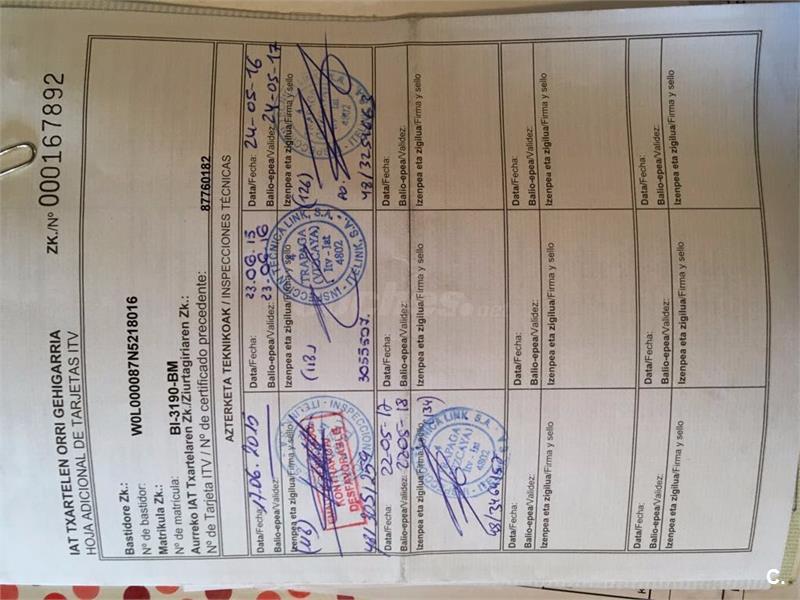 IAT TXARTELEN ORRI GEHIGARRIA
HOJA ADICIONAL DE TARJETAS ITV
ZK./Nº 000167892
Bastidore Zk.:
Nº de bastidor: W0L000087N5218016
Matrikula Zk.:
Nº de matrícula: BI-3190-BM
Aurreko IAT Txartelaren Zk./Ziurtagiriaren Zk.:
Nº de Tarjeta ITV / Nº de certificado precedente: 87760182
AZTERKETA TEKNIKOAK / INSPECCIONES TÉCNICAS
Data/Fecha: 17.06.2015
Balio-epea/Validez:
Izenpea eta zigilua/Firma y sello
(118)
KONTRAKOA
DESFAVORABLE
Data/Fecha: 23.06.15
Balio-epea/Validez: 23.06.16
Izenpea eta zigilua/Firma y sello
(118)
TRAPAGA
(VIZCAYA)
Itv - Iat
4802
3055507
Data/Fecha: 24-05-16
Balio-epea/Validez: 24-05-17
Izenpea eta zigilua/Firma y sello
(126)
PO.
4802
Data/Fecha: 2205-17
Balio-epea/Validez: 2205-18
Izenpea eta zigilua/Firma y sello
(134)
TRAPAGA
(VIZCAYA)
Itv - Iat
4802
Data/Fecha:
Balio-epea/Validez:
Izenpea eta zigilua/Firma y sello
Data/Fecha:
Balio-epea/Validez:
Izenpea eta zigilua/Firma y sello
Data/Fecha:
Balio-epea/Validez:
Izenpea eta zigilua/Firma y sello
Data/Fecha:
Balio-epea/Validez:
Izenpea eta zigilua/Firma y sello
Data/Fecha:
Balio-epea/Validez:
Izenpea eta zigilua/Firma y sello
Data/Fecha:
Balio-epea/Validez:
Izenpea eta zigilua/Firma y sello
Data/Fecha:
Balio-epea/Validez:
Izenpea eta zigilua/Firma y sello
Data/Fecha:
Balio-epea/Validez:
Izenpea eta zigilua/Firma y sello
C.